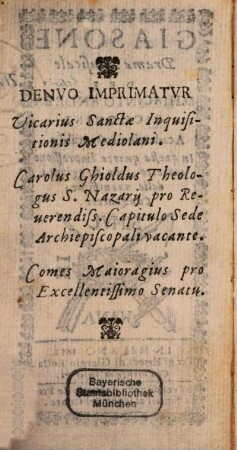 DENVO IMPRIMATVR
Vicarius Sanctæ Inquisi-
tionis Mediolani.
Carolus Ghioldus Theolo-
gus S. Nazarij pro Re-
uerendiss. Capitulo Sede
Archiepiscopali vacante.
Comes Maioragius pro
Excellentissimo Senatu.
Bayerische
Staatsbibliothek
München